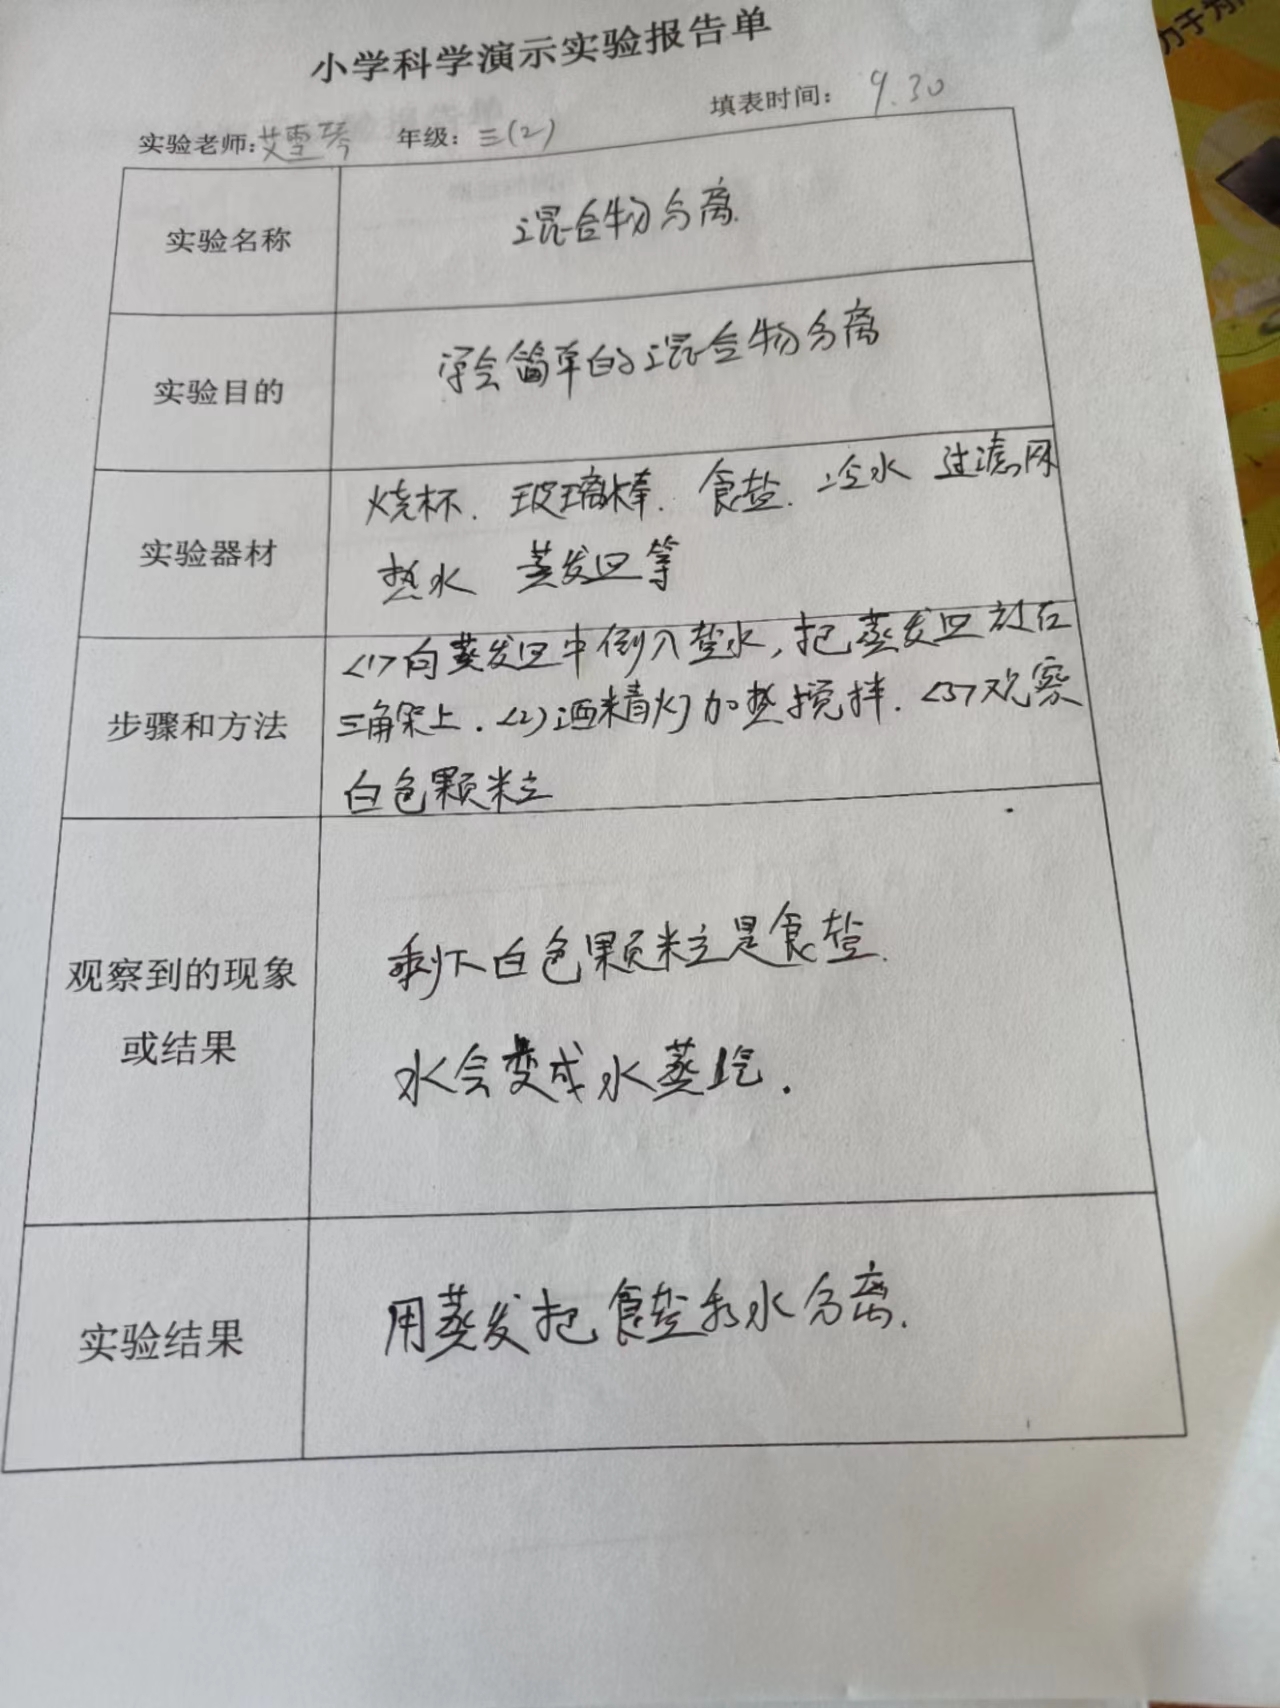 小学科学演示实验报告单
实验老师:艾雪琴 年级:三(2) 填表时间: 9.30
实验名称 混合物分离.
实验目的 学会简单的混合物分离
实验器材 烧杯、玻璃棒. 食盐. 冷水 过滤网
热水 蒸发皿等
步骤和方法 <1>向蒸发皿中倒入盐水,把蒸发皿放在
三角架上.<2>酒精灯加热搅拌.<3>观察
白色颗粒
观察到的现象
或结果
剩下白色颗粒是食盐.
水会变成水蒸汽.
实验结果 用蒸发把食盐和水分离.